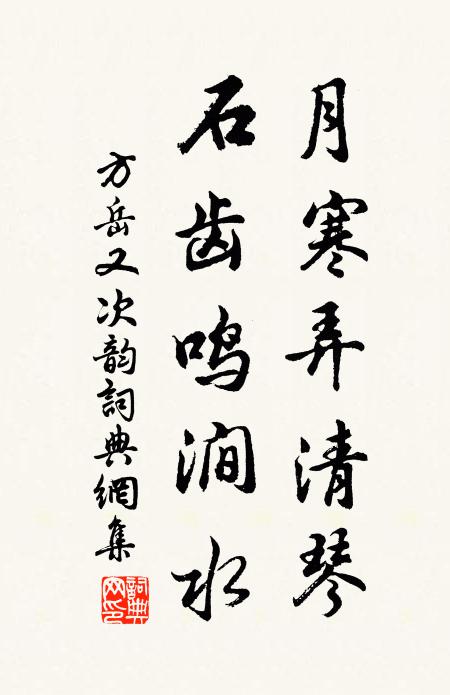 月寒弄清琴
石齿鸣涧水
方岳又次韵詞典網集
詞典网印